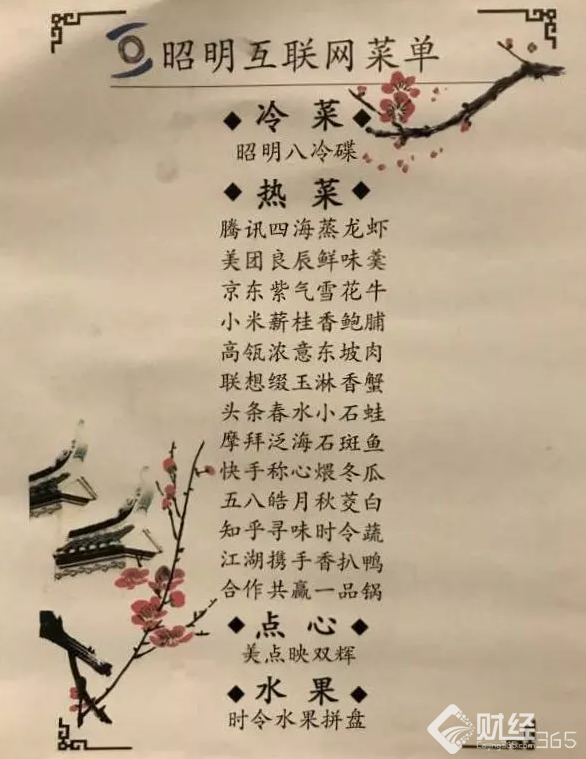 昭明互联网菜单
◆冷菜◆
昭明八冷碟
◆热菜◆
腾讯四海蒸龙虾
美团良辰鲜味羹
京东紫气雪花牛
小米薪桂香鲍脯
高瓴浓意东坡肉
联想缀玉淋香蟹
头条春水小石蛙
摩拜泛海石斑鱼
快手称心煨冬瓜
五八皓月秋茭白
知乎寻味时令蔬
江湖携手香扒鸭
合作共赢一品锅
◆点心◆
美点映双辉
◆水果◆
时令水果拼盘
财经365